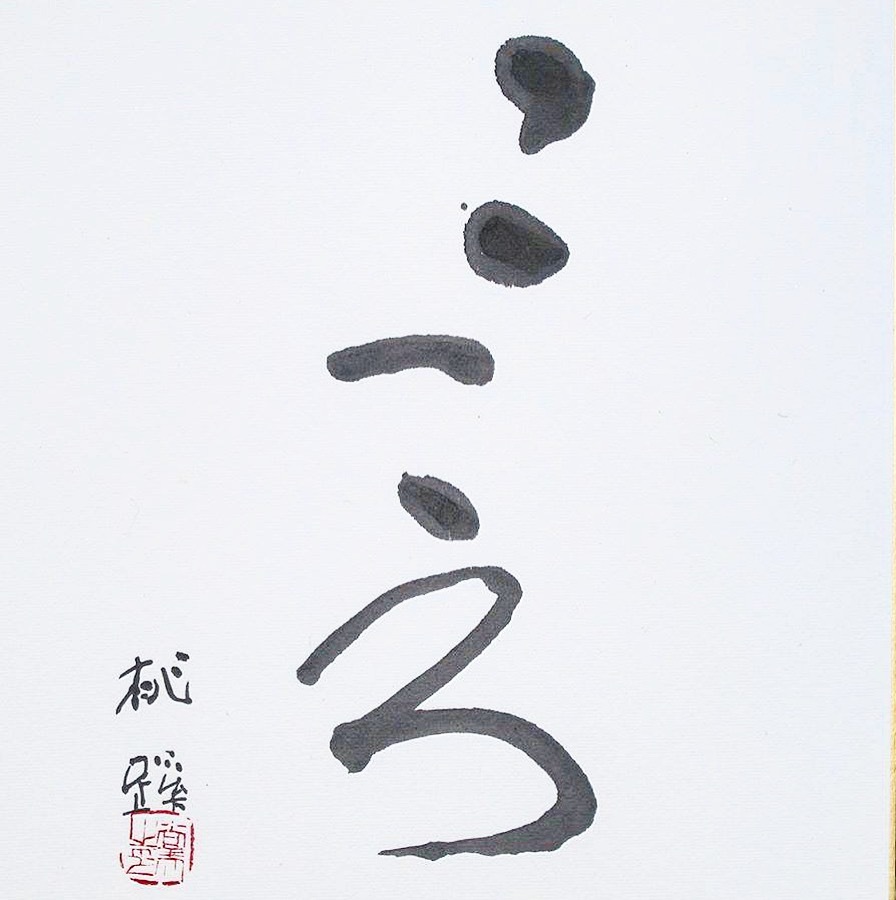 こころ
桃蹊